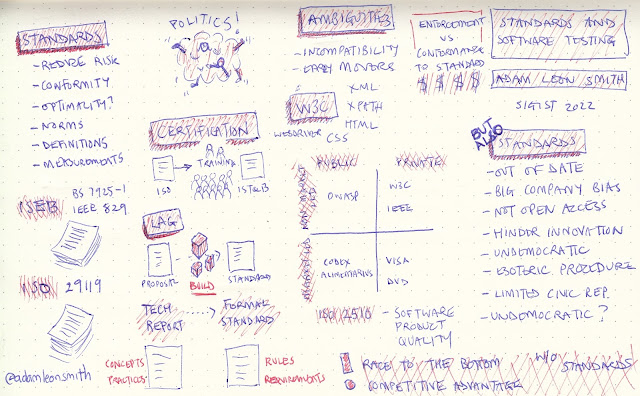 STANDARDS
- REDUCE RISK
- CONFORMITY
- OPTIMALITY?
- NORMS
- DEFINITIONS
- MEASUREMENTS
ISEB
BS 7925-1
IEEE 829
ISO 29119
@adamleonsmith
POLITICS!
CERTIFICATION
TRAINING
ISO
ISTQB
LAG
PROPOSAL
BUILD
STANDARD
TECH
REPORT
FORMAL
STANDARD
CONCEPTS
PRACTICES
RULES
REQUIREMENTS
AMBIGUITY
- INCOMPATIBILITY
- EARLY MOVERS
W3C
WEBDRIVER
XML
XPATH
HTML
CSS
PUBLIC
PRIVATE
OWASP
W3C
IEEE
CODEX
ALIMENTARIUS
VISA
DVD
ISO 2510 - SOFTWARE
PRODUCT
QUALITY
ENFORCEMENT
VS
CONFORMANCE
TO STANDARD
$ $ $ $
STANDARDS AND
SOFTWARE TESTING
ADAM LEON SMITH
SIGIST 2022
BUT
ALSO
STANDARDS
- OUT OF DATE
- BIG COMPANY BIAS
- NOT OPEN ACCESS
- HINDER INNOVATION
- UNDEMOCRATIC
- ESOTERIC PROCEDURE
- LIMITED CIVIC REP.
- UNDEMOCRATIC?
RACE TO THE BOTTOM W/O STANDARDS
COMPETITIVE ADVANTAGE